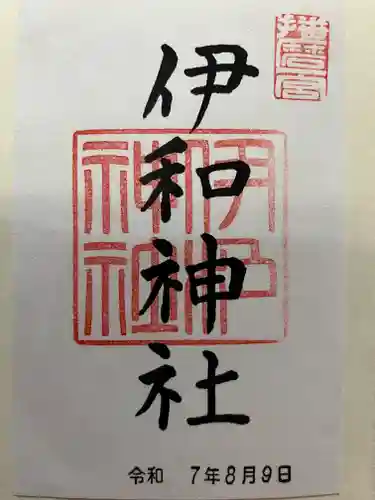 播磨一宮
伊和神社
伊和神社
令和 7年8月9日